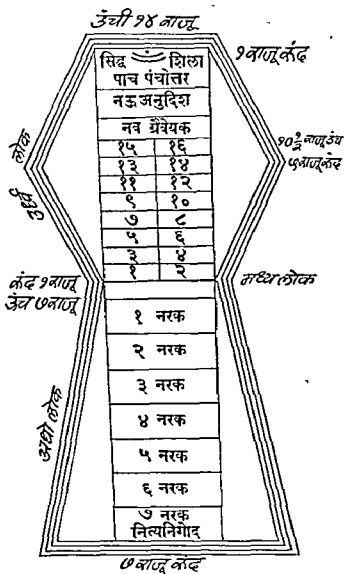 उंची १४ राजू
१ राजू रूंद
सिद्ध शिला
पाच पंचोत्तर
नऊ अनुदिश
नव ग्रैवेयक
१५ १६
१३ १४
११ १२
९ १०
७ ८
५ ६
३ ४
१ २
उर्ध्व लोक
१० १/२ राजू उंच
५ राजू रूंद
रूंद १ राजू
उंच ७ राजू
मध्य लोक
१ नरक
२ नरक
३ नरक
४ नरक
५ नरक
६ नरक
७ नरक
नित्यनिगोद
अधो लोक
७ राजू रूंद